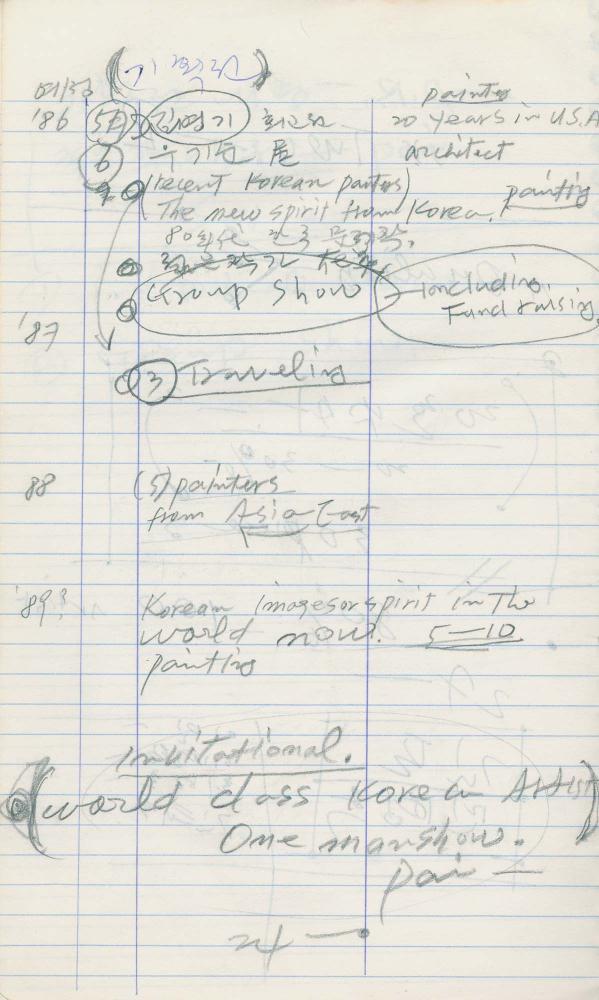 (기획전)
painter
'86 5 김영기 회고전 20 years in U.S.A
6 architect
(recent Korean painters) painting
The new spirit from Korea.
80
Group Show including.
Fund raising.
'87
③ Traveling
88 (5) painters
from Asia East
'89? Korean images or spirit in The
world now? 5—10
painting
invitational.
(world class Korean Artist)
One man show.
pair —